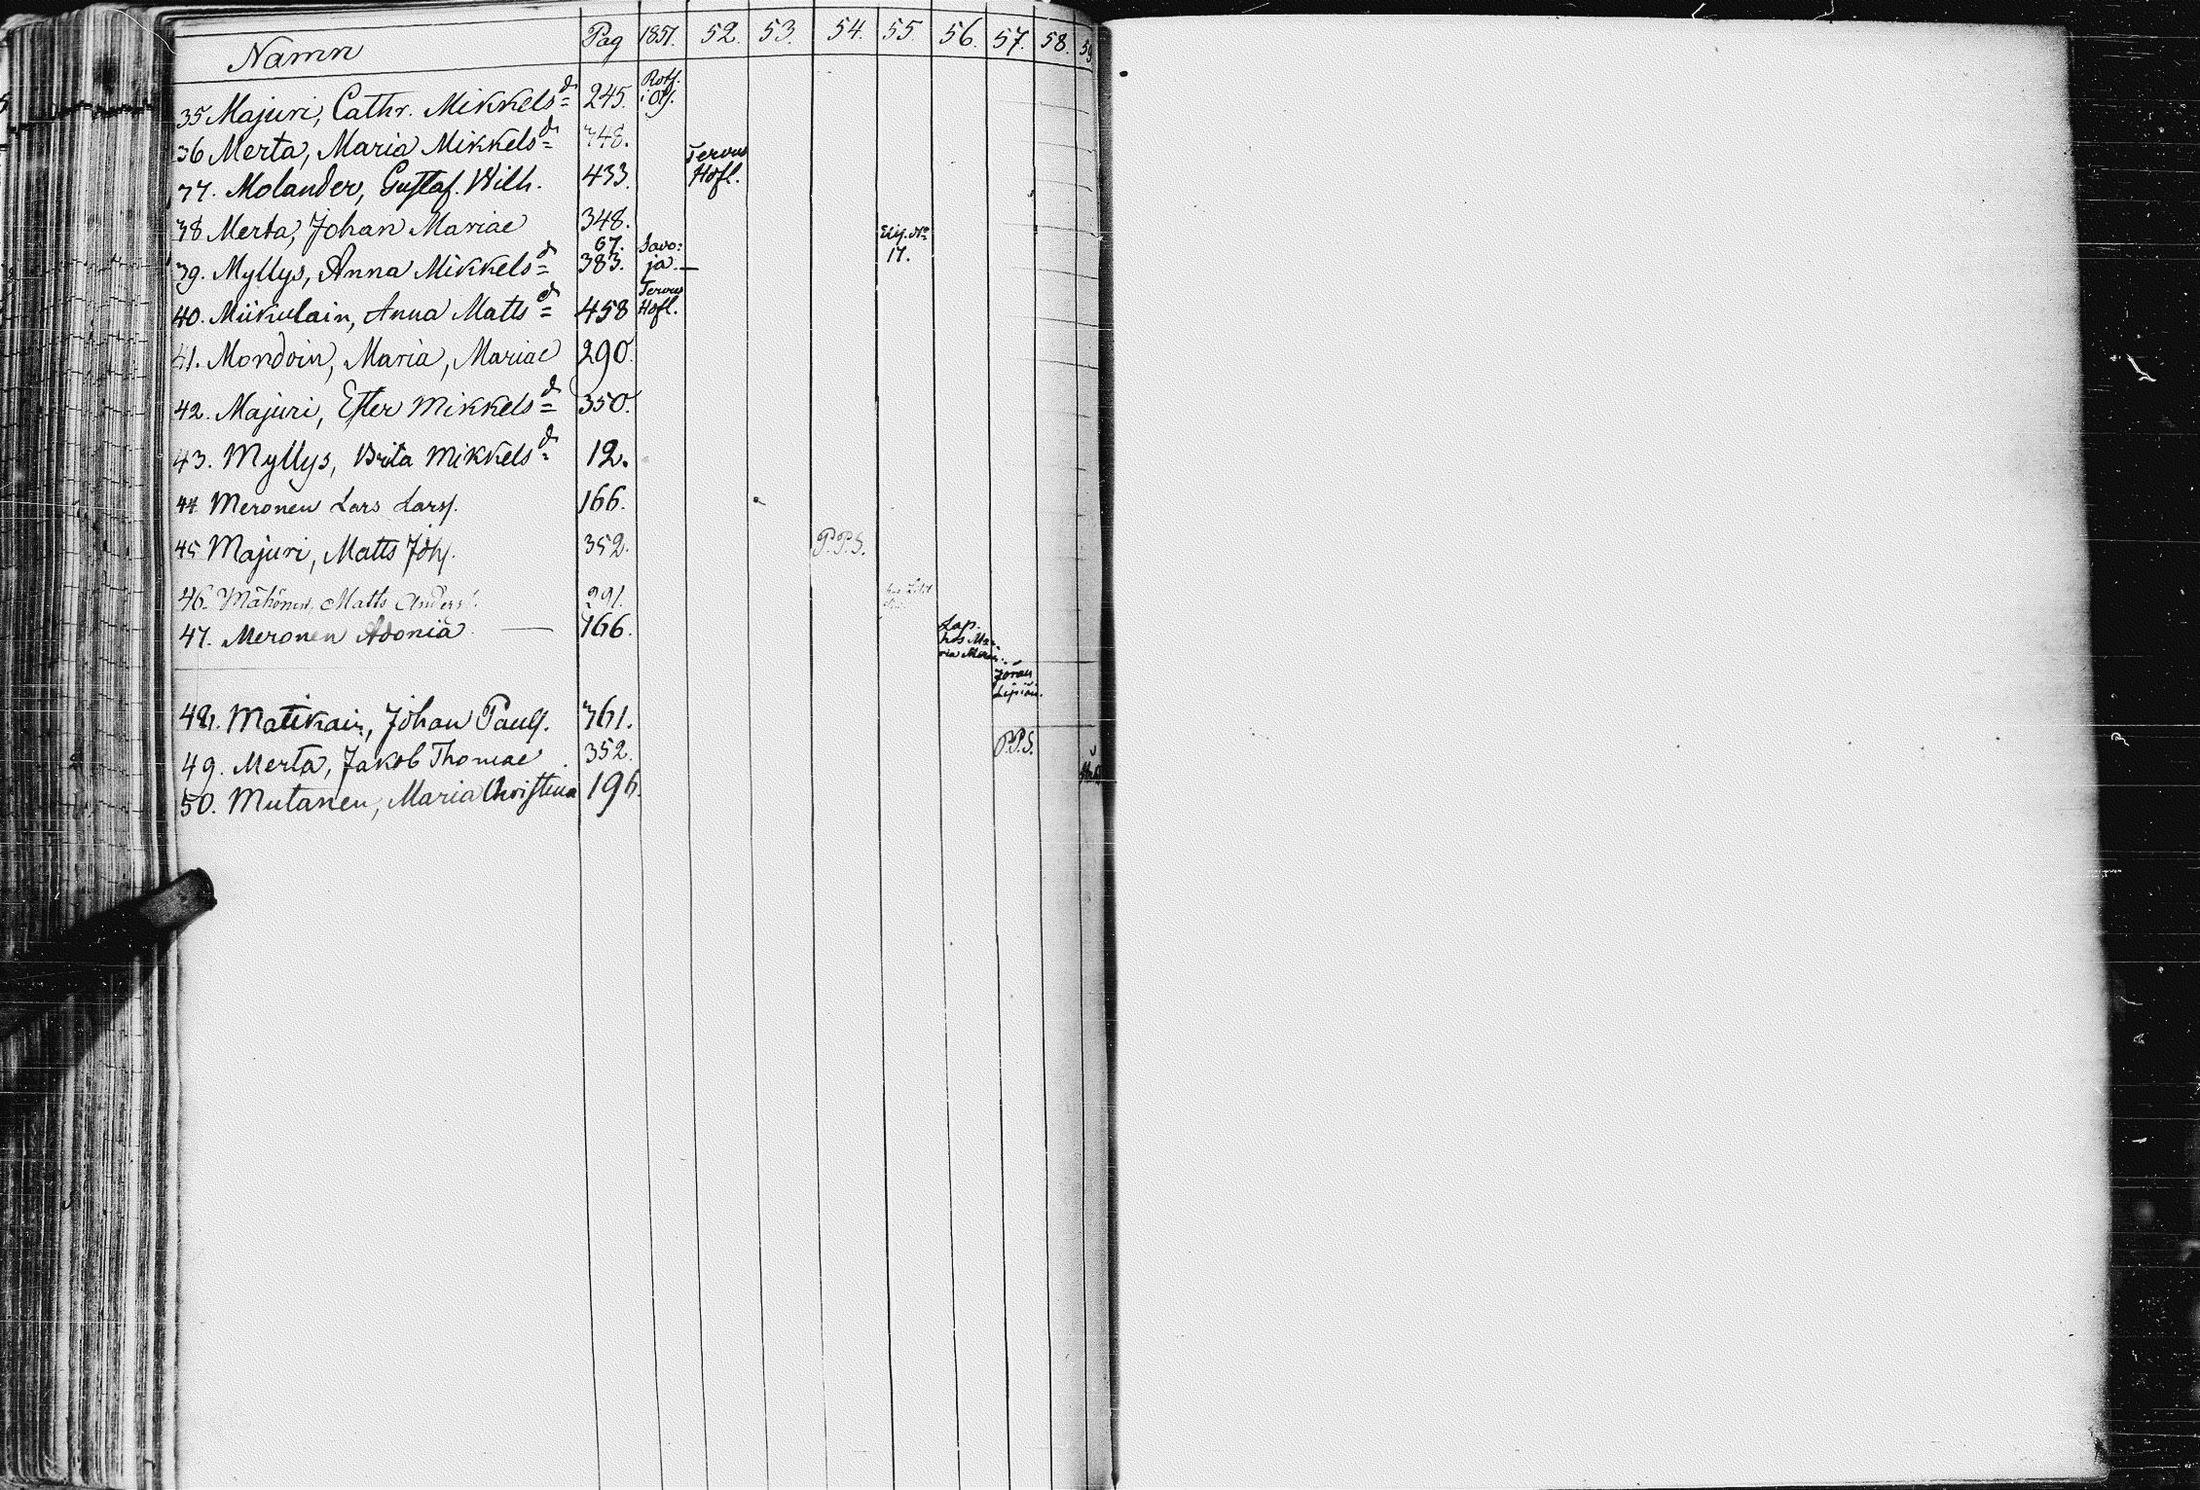 Namn Pag 1851. 52. 53. 54. 55. 56. 57. 58. 59
35 Majuri, Cathr. Mikkelsd 245.
36 Merta, Maria Mikkelsd 348.
37. Molander, Gustaf. Wilh. 433. Hofl.
38 Merta, Johan Mariae 348.
67. Savo:
39. Myllys, Anna Mikkelsd 383. ja 17.
40. Miikulain, Anna Mattsd 458 Hofl.
41. Mondoin, Maria, Mariae 290.
42. Majuri, Ester Mikkelsd 350.
43. Myllys, Brita Mikkelsd 12.
44 Meronen Lars Larss. 166.
45 Majuri, Matts Joh. 352. P.P.S.
46. Mähönen, Matts Anders. 291.
47. Meronen Adonia — 166. Lap.
48. Matikain, Johan Pauls. 361.
49. Merta, Jakob Thomae 352. P.P.S.
50. Mutanen, Maria Christina 196.